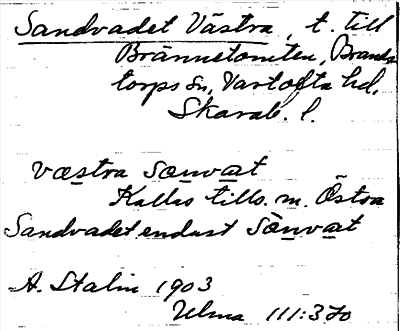 Sandvadet Västra, t. till
Brännetomten, Brands
torps sn, Vartofta hd,
Skarab. l.
væstra sænvat
Kallas tills. m. Östra
Sandvadet endast sænvat
A. Stalin 1903
Ulma 111:370